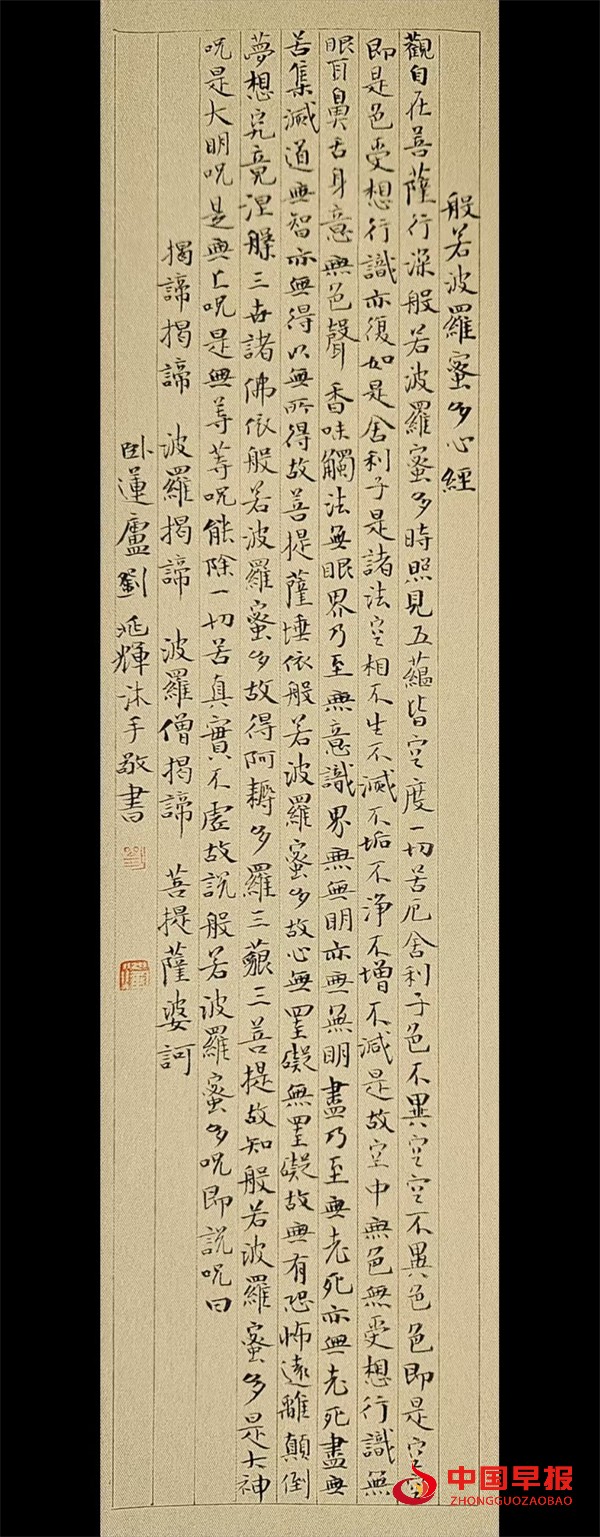 般若波羅蜜多心經
觀自在菩薩行深般若波羅蜜多時照見五蘊皆空度一切苦厄舍利子色不異空空不異色色即是空空
即是色受想行識亦復如是舍利子是諸法空相不生不滅不垢不淨不增不減是故空中無色無受想行識無
眼耳鼻舌身意無色聲香味觸法無眼界乃至無意識界無無明亦無無明盡乃至無老死亦無老死盡無
苦集滅道無智亦無得以無所得故菩提薩埵依般若波羅蜜多故心無罣礙無罣礙故無有恐怖遠離顛倒
夢想究竟涅槃三世諸佛依般若波羅蜜多故得阿耨多羅三藐三菩提故知般若波羅蜜多是大神
呪是大明呪是無上呪是無等等呪能除一切苦真實不虛故說般若波羅蜜多呪即說呪曰
揭諦揭諦 波羅揭諦 波羅僧揭諦 菩提薩婆訶
臥蓮廬劉輝沐手敬書
中国早报
ZHONGGUOZAOBAO